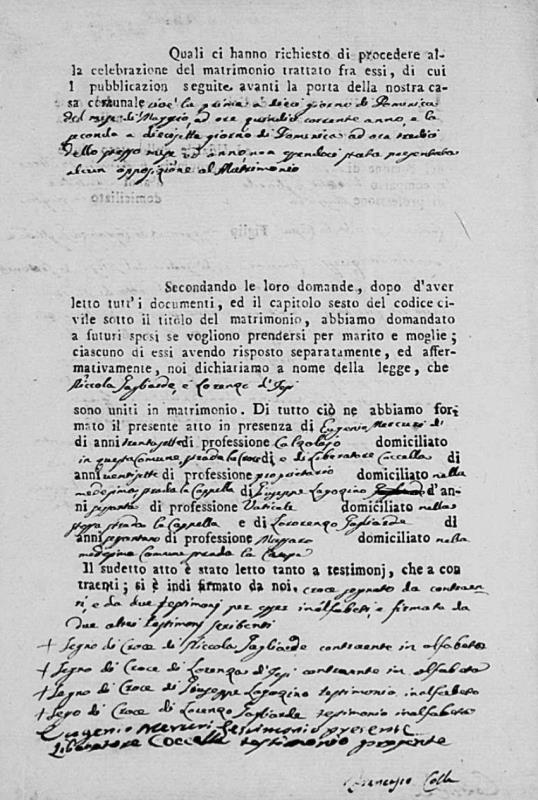 Quali ci hanno richiesto di procedere al-
la celebrazione del matrimonio trattato fra essi, di cui
l pubblicazion seguite avanti la porta della nostra ca-
sa comunale cioè la prima a dieci giorno di Domenica
del mese di Maggio, ad ore quindici corrente anno, e la
seconda a diecisette giorno di Domenica ad ore tredici
dello stesso mese ed anno, non essendoci stata presentata
alcun opposizione al Matrimonio
domiciliato
Figlio
Secondando le loro domande, dopo d'aver
letto tutt'i documenti, ed il capitolo sesto del codice ci-
vile sotto il titolo del matrimonio, abbiamo domandato
a futuri sposi se vogliono prendersi per marito e moglie;
ciascuno di essi avendo risposto separatamente, ed affer-
mativamente, noi dichiariamo a nome della legge, che
Niccola Gagliarde, e Lorenza d'Isei
sono uniti in matrimonio. Di tutto ciò ne abbiamo for-
mato il presente atto in presenza di Eugenio Mercuri di
di anni trentasette di professione Calzolajo domiciliato
in questa Comune, strada la Croce di e di Liberatore Coccella di
anni ventisette di professione proprietario domiciliato nella
medesima strada la Cappella di Giuseppe Laposino d'an-
ni sessanta di professione Vaticale domiciliato nella
stessa strada la Cappella e di Lorenzo Gagliarde di
anni di professione Massaro domiciliato nella
medesima Comune strada la
Il sudetto atto è stato letto tanto a testimonj, che a con
traenti; si è indi firmato da noi, croce segnato da contraen-
ti, e da due testimonj per esser inalfabeti, e firmato da
due altri testimonj scribenti
+ Segno di Croce di Niccola Gagliarde contraente in alfabeto
+ Segno di Croce di Lorenza d'Isei contraente in alfabeta
+ Segno di Croce di Giuseppe Laposino testimonio inalfabeto
+ Sego di Croce di Lorenzo Gagliarde testimonio inalfabeto
Eugenio Mercuri testimonio presente
Liberatore Coccella testimonio presente
Francesco Colla